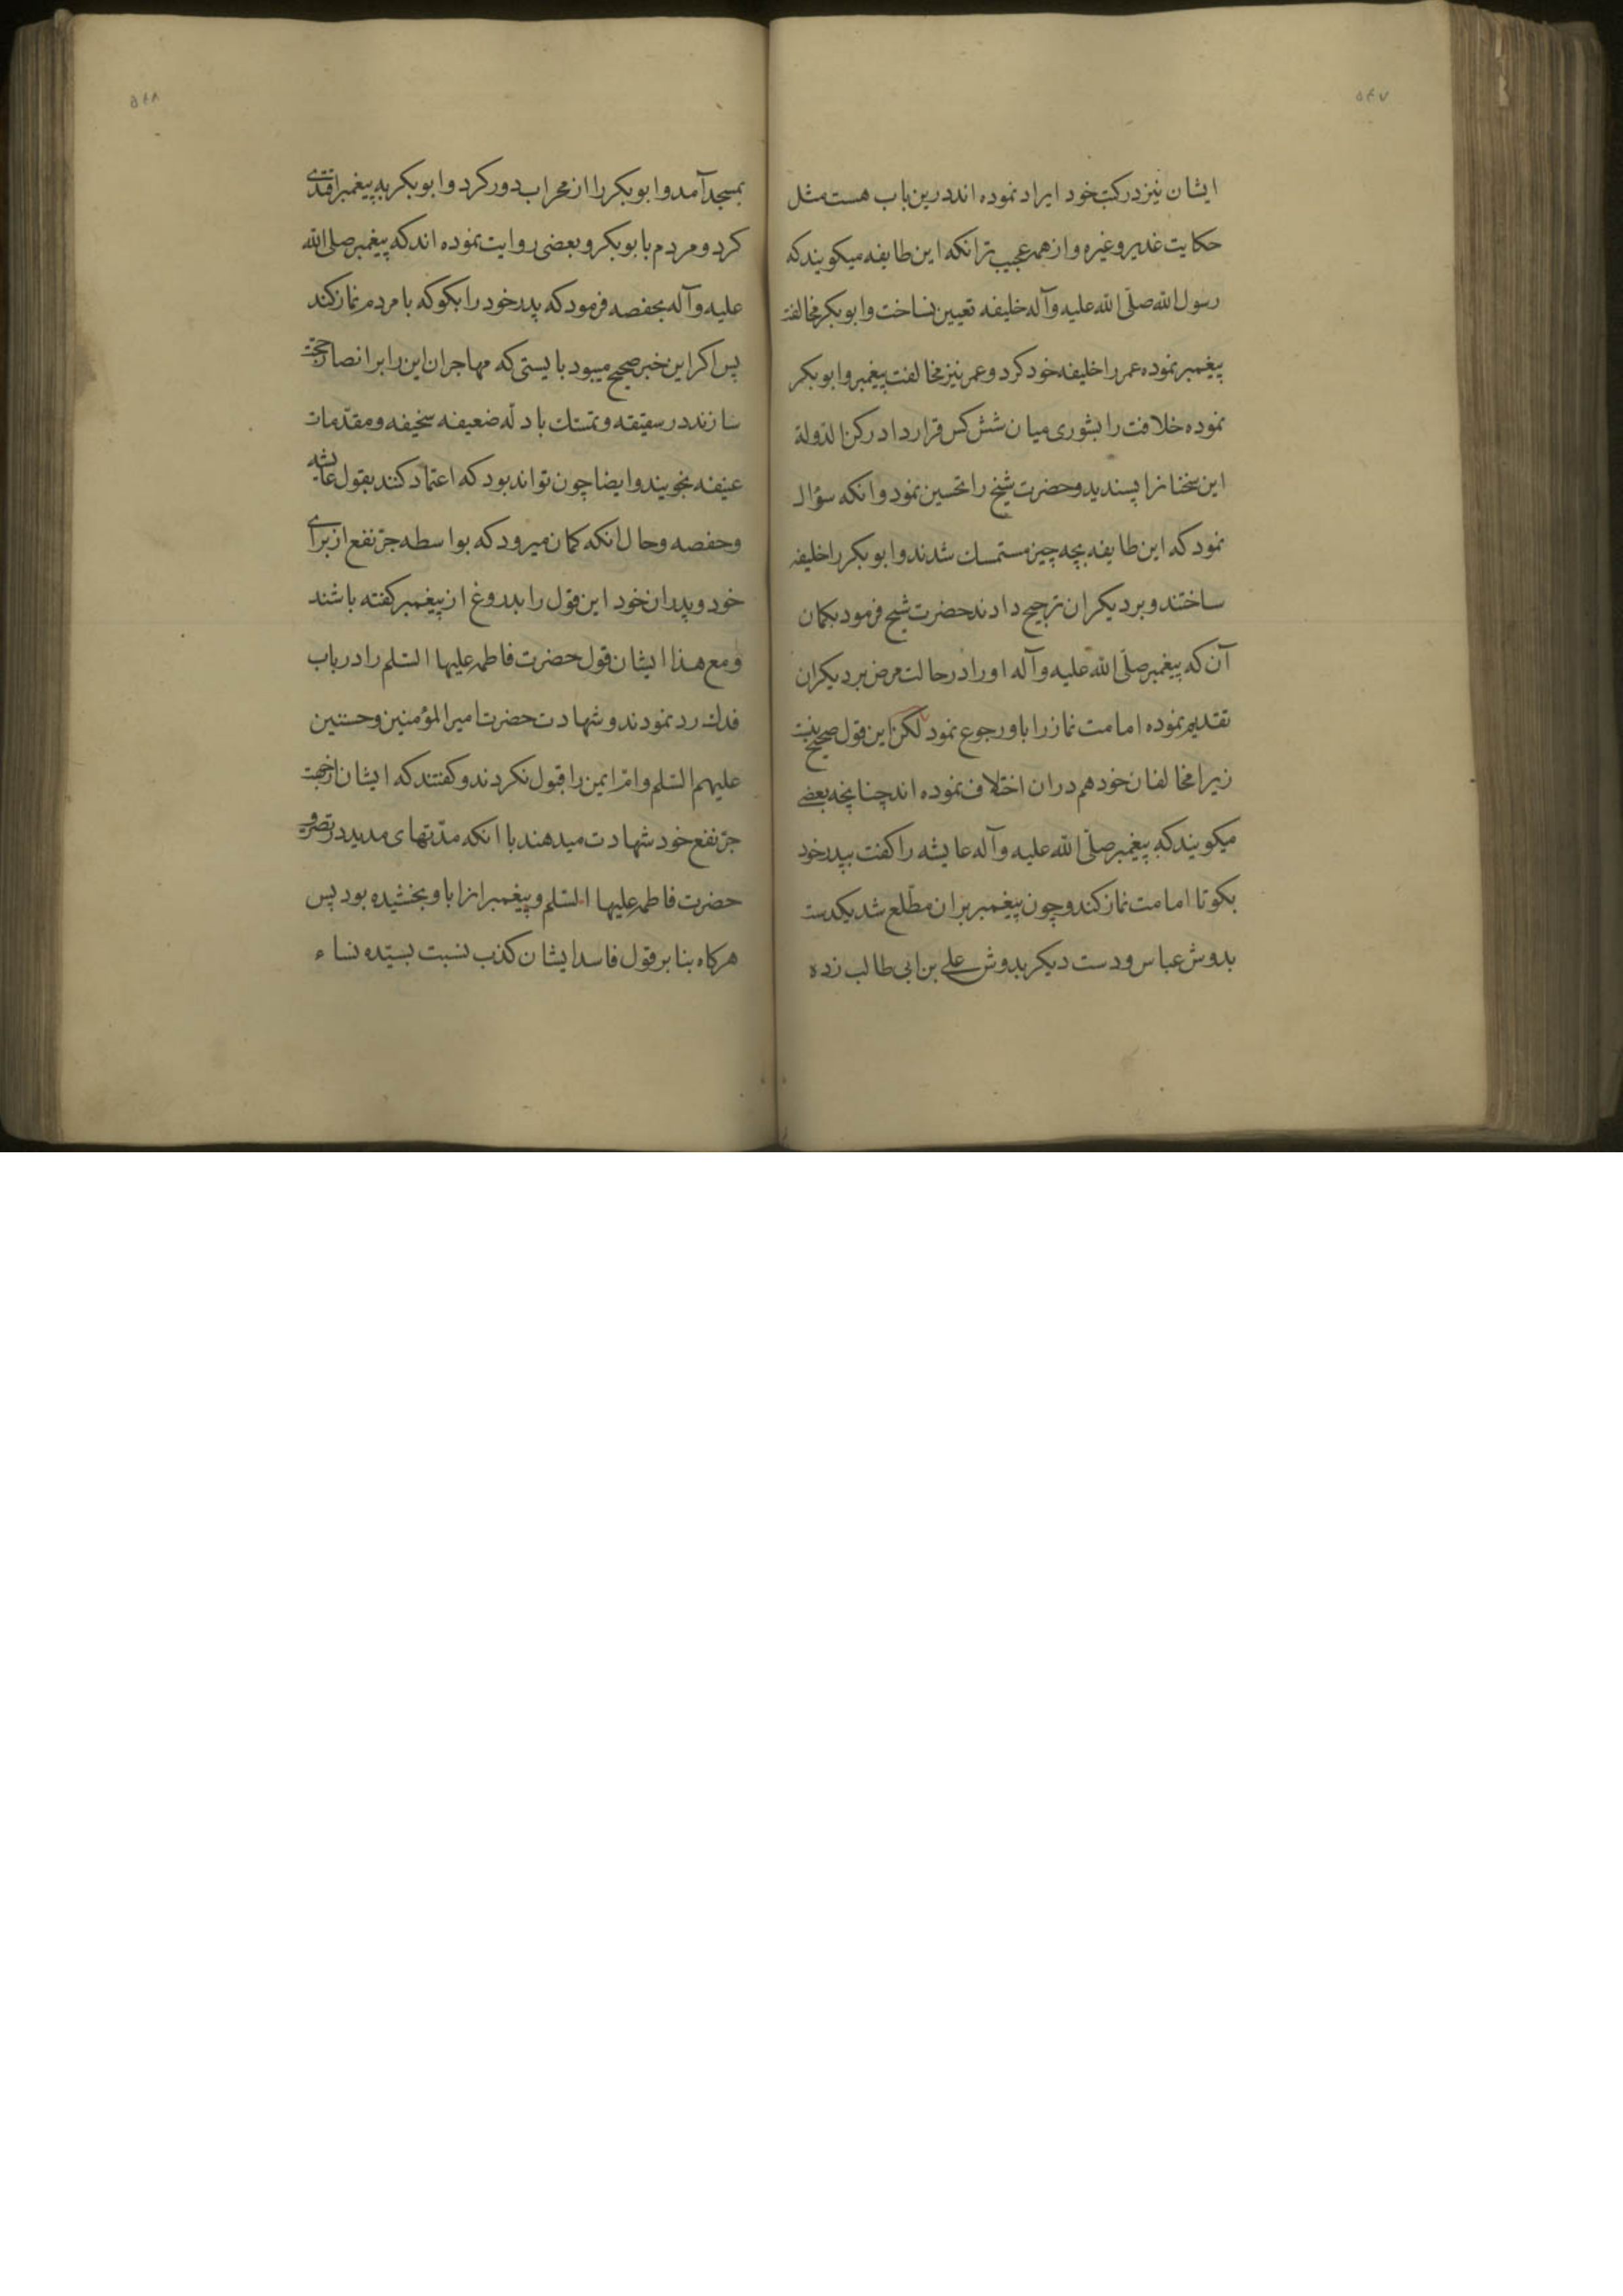 ۵۴۷
ایشان نیز در کتب خود ایراد نموده اند درین باب هست مثل
حکایت غدیر و غیره و از همه عجیب تر انکه این طایفه میکویند که
رسول الله صلّی الله علیه و آله خلیفه تعیین نساخت و ابوبکر مخالفت
پیغمبر نموده عمر را خلیفه خود کرد و عمر نیز مخالفت پیغمبر و ابوبکر
نموده خلافت را بشوری میان شش کس قرار داد رکن الدوله
این سخنانرا پسندید و حضرت شیخ را تحسین نمود و انکه سؤال
نمود که این طایفه بچه چیز مستمسک شدند و ابوبکر را خلیفه
ساختند و بر دیکران ترجیح دادند حضرت شیخ فرمود بکمان
آن که پیغمبر صلّی الله علیه و آله او را در حالت مرض بر دیکران
تقدیم نموده امامت نماز را باو رجوع نمود لکن این قول صحیح نیست
زیرا مخالفان خود هم دران اختلاف نموده اند چنانچه بعضے
میکویند که پیغمبر صلّی الله علیه و آله عایشه را کفت بپدر خود
بکو تا امامت نماز کند و چون پیغمبر بران مطّلع شد یکدست
بدوش عباس و دست دیکر بدوش علے بن ابی طالب زده
۵۴۸
بمسجد آمد و ابوبکر را از محراب دور کرد و ابوبکر به پیغمبر اقتدی
کرد و مردم بابوبکر و بعضی روایت نموده اند که پیغمبر صلی الله
علیه و آله بحفصه فرمود که پدر خود را بکو که با مردم نماز کند
پس اکر این خبر صحیح میبود بایستی که مهاجران این را بر انصار حجت
سازند در سقیفه و تمسّک بادلّه ضعیفه سخیفه و مقدّمات
عنیفه نجویند و ایضا چون تواند بود که اعتماد کنند بقول عایشه
و حفصه و حال انکه کمان میرود که بواسطه جرّ نفع از برای
خود و پدران خود این قول را بدروغ از پیغمبر کفته باشند
و مع هذا ایشان قول حضرت فاطمه علیها السّلم را در باب
فدك رد نمودند و شهادت حضرت امیر المؤمنین و حسنین
علیهم السّلم و امّ ایمن را قبول نکردند و کفتند که ایشان از جهت
جرّ نفع خود شهادت میدهند با انکه مدّتهای مدید در تصرف
حضرت فاطمه علیها السّلم و پیغمبر انرا باو بخشیده بود پس
هرکاه بنابر قول فاسد ایشان کذب نسبت بسیّده نساء